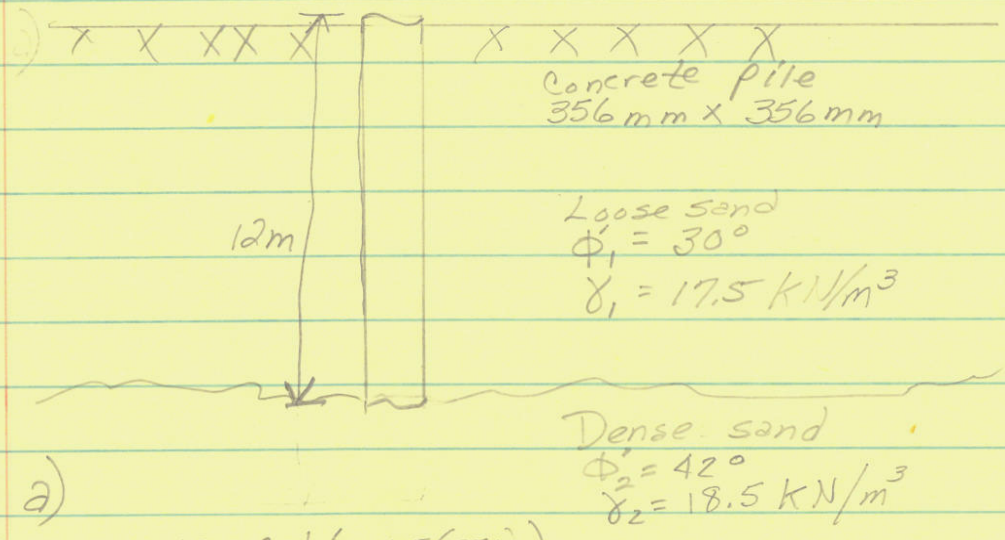 Concrete pile
356mm x 356mm
12m
Loose sand
ϕ'₁ = 30°
γ₁ = 17.5 KN/m³
Dense sand
ϕ'₂ = 42°
a)
γ₂ = 18.5 KN/m³